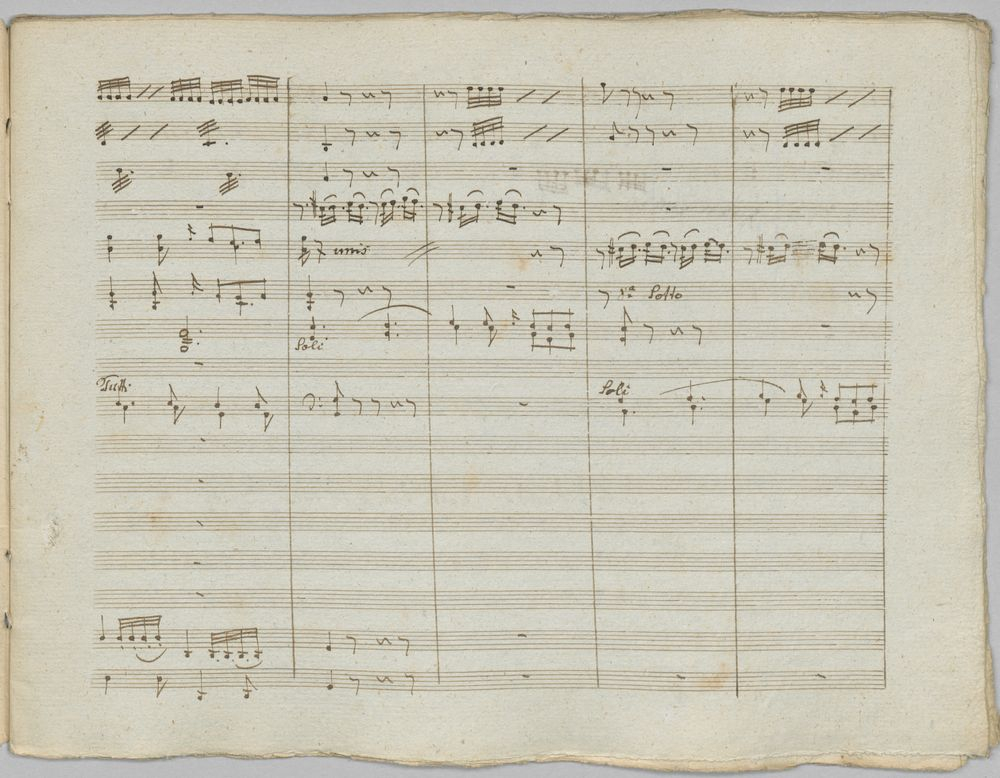 unis
Sotto
Soli
Tutti
Soli